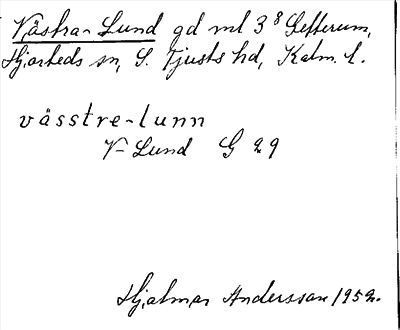 Västra-Lund gd ml 3⁸ Getterum,
Hjorteds sn, S. Tjusts hd, Kalm. l.
västre-lunn
V- Lund G 29
Hjalmar Andersson 1952.